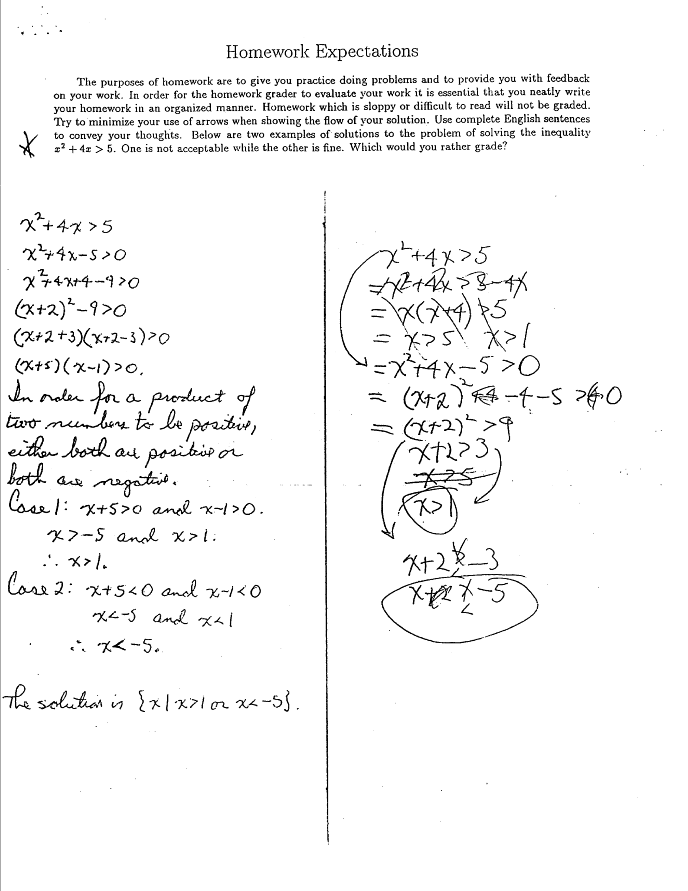 Homework Expectations
The purposes of homework are to give you practice doing problems and to provide you with feedback
on your work. In order for the homework grader to evaluate your work it is essential that you neatly write
your homework in an organized manner. Homework which is sloppy or difficult to read will not be graded.
Try to minimize your use of arrows when showing the flow of your solution. Use complete English sentences
to convey your thoughts. Below are two examples of solutions to the problem of solving the inequality
x² + 4x > 5. One is not acceptable while the other is fine. Which would you rather grade?
x²+4x>5
x²+4x-5>0
x²+4x+4-9>0
(x+2)²-9>0
(x+2+3)(x+2-3)>0
(x+5)(x-1)>0.
In order for a product of
two numbers to be positive,
either both are positive or
both are negative.
Case 1: x+5>0 and x-1>0.
x>-5 and x>1.
∴ x>1.
Case 2: x+5<0 and x-1<0
x<-5 and x<1
∴ x<-5.
The solution is {x|x>1 or x<-5}.
x²+4x>5
= x(x+4)>5
= x>5 x>1
= x²+4x-5>0
= (x+2)² -4-5 > 0
= (x+2)²>9
x+2>3
x>5
x>1
x+2 < -3
x < -5